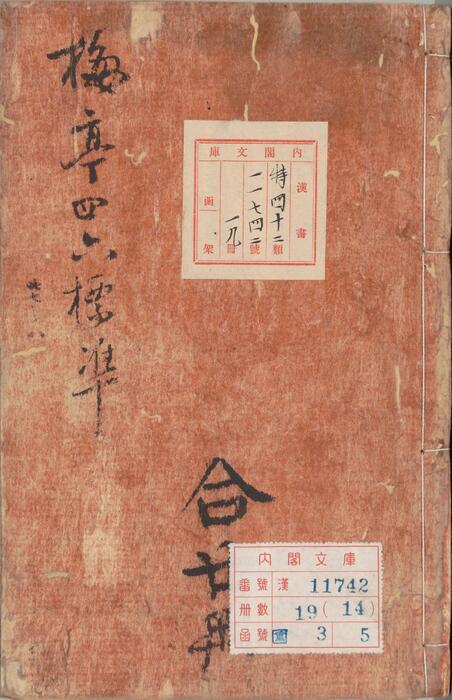 梅亭四六標準
内閣文庫
漢書
特四十二類
一一七四二號
一九冊
函
架
合廿冊
内閣文庫
番號 漢 11742
册數 19(14)
函號 3 5